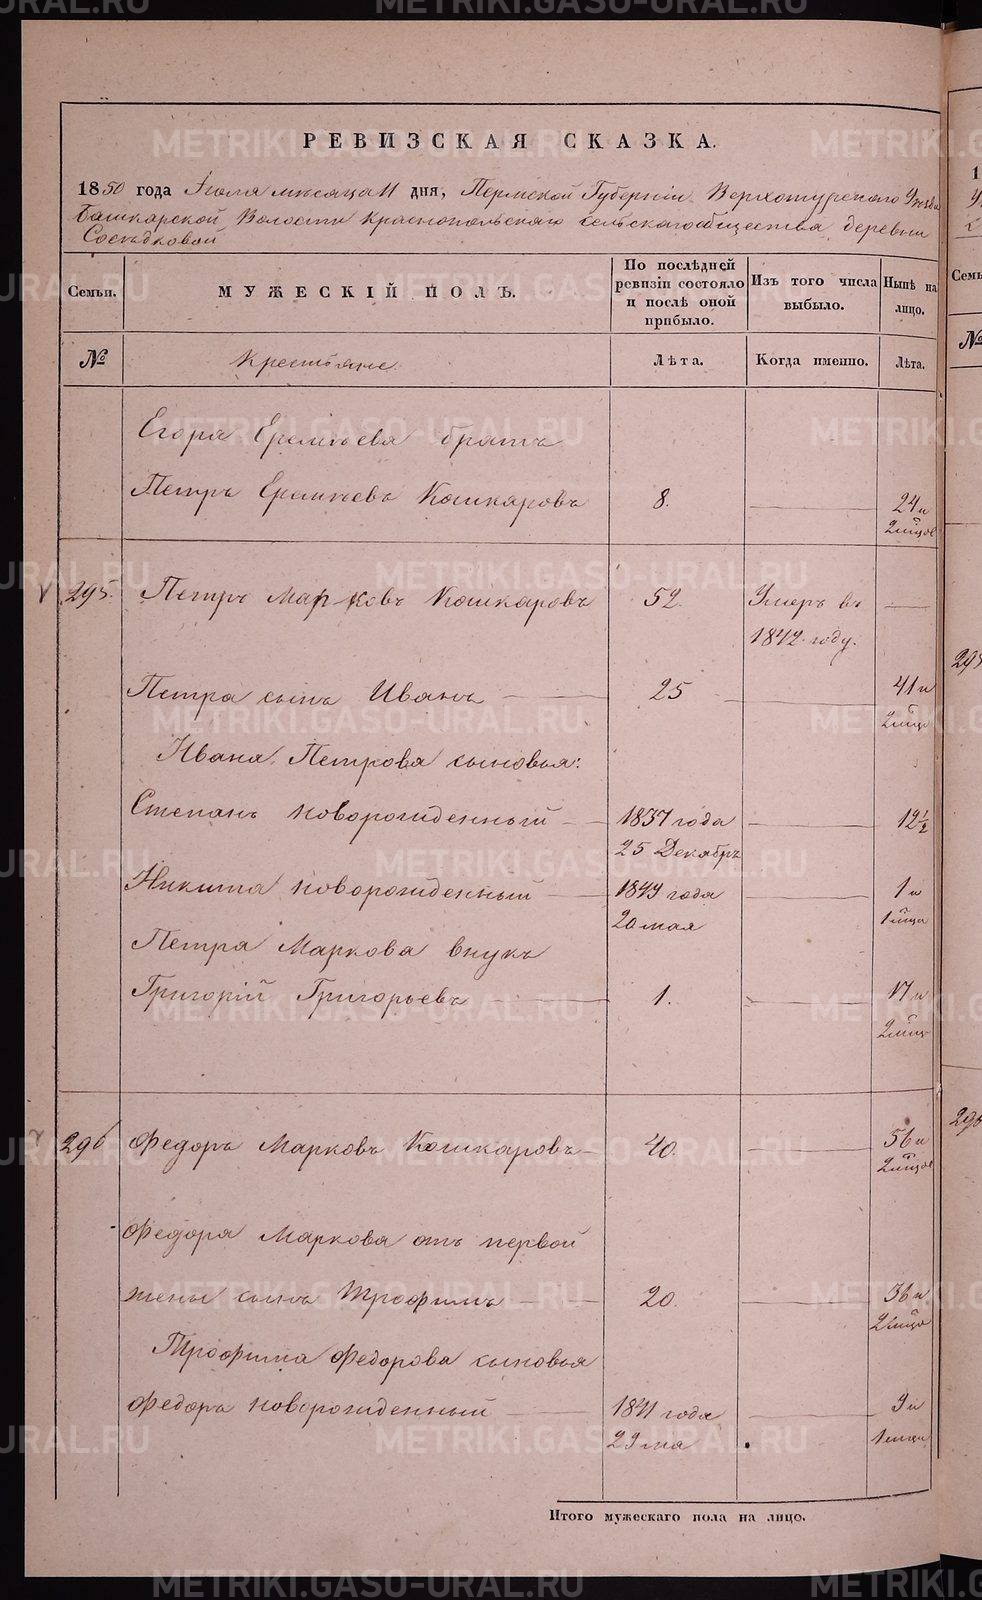 METRIKI.GASO-URAL.RU
РЕВИЗСКАЯ СКАЗКА.
1850 года Іюля мѣсяца 11 дня, Пермской Губерніи Верхотурскаго Уѣзда
Башкарской Волости Краснопольскаго сельскаго общества деревни
Сосѣдковой
Семьи.
МУЖЕСКІЙ ПОЛЪ.
По послѣдней ревизіи состояло и послѣ оной прибыло.
Изъ того числа выбыло.
Нынѣ на лицо.
№
Крестьяне.
Лѣта.
Когда именно.
Лѣта.
Егора Еремѣева братъ
Петръ Еремѣевъ Кошкаровъ 8. 24 и
2 мѣцов
295. Петръ Марковъ Кошкаровъ 52. Умеръ въ
1842 году.
Петра сынъ Иванъ 25 41 и
2 мѣца
Ивана Петрова сыновья:
Степанъ новорожденный 1837 года 12½
25 Декабръ
Никита новорожденный 1849 года 1 и
20 мая 1 мѣца
Петра Маркова внукъ
Григорій Григорьевъ 1. 17 и
2 мѣц
296 Федоръ Марковъ Кошкаровъ 40. 56 и
2 мѣцов
Федора Маркова отъ первой
жены сынъ Трофимъ 20. 36 и
2 мѣцо
Трофима Федорова сыновья
Федоръ новорожденный 1841 года 9 и
29 ма 1 мѣци
Итого мужескаго пола на лицо.
295
296